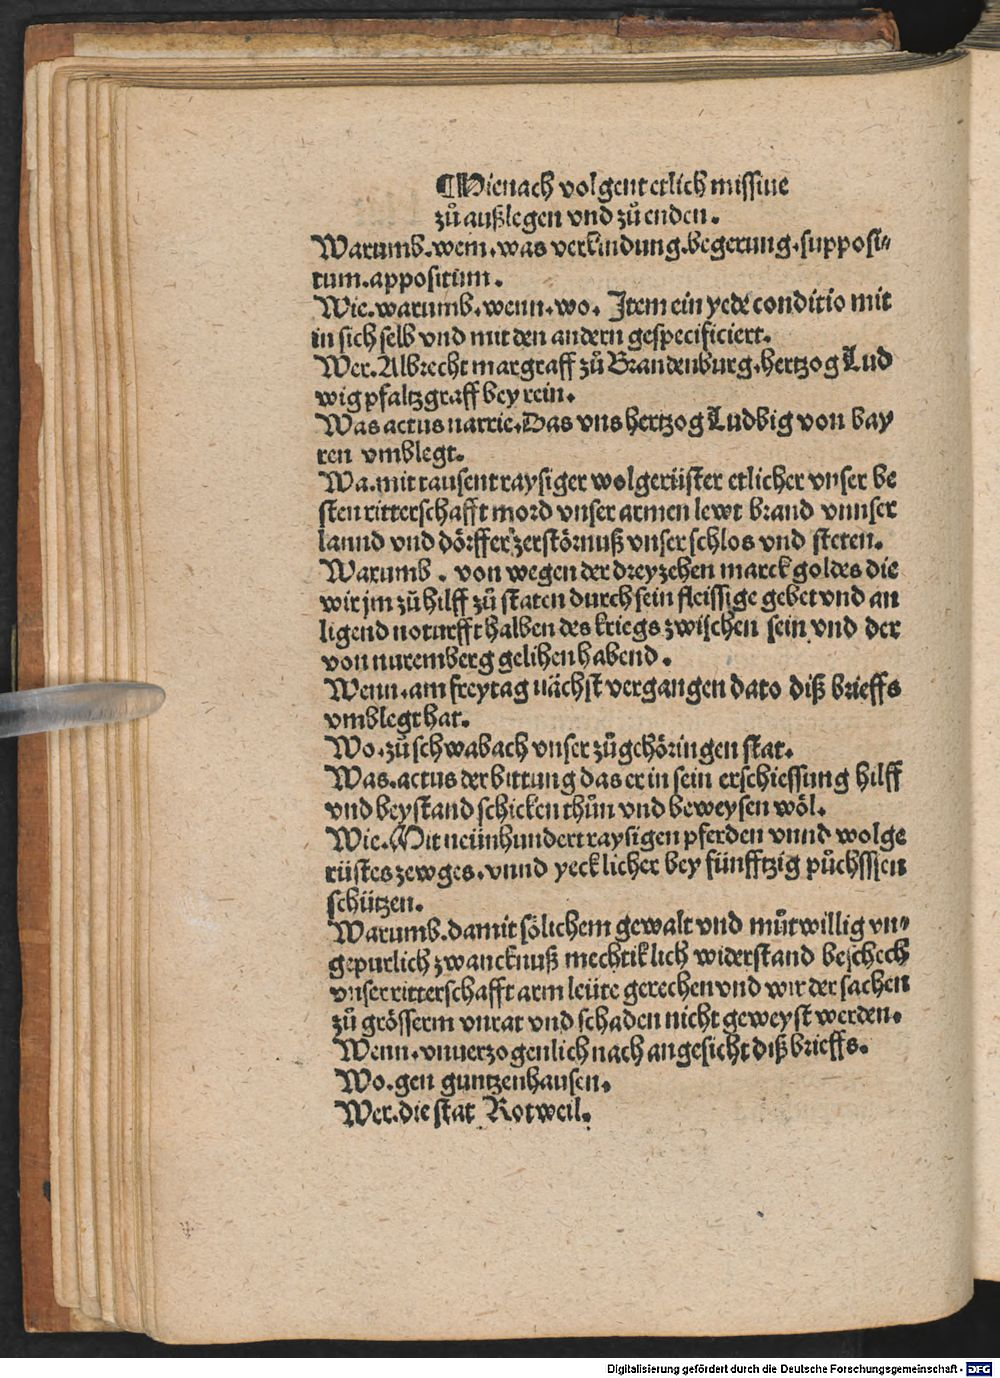 ¶Hienach volgent etlich missiue
zů außlegen vnd zů enden.
Warumb.wem.was verkündung.begerung.supposi⸗
tum.appositum.
Wie.warumb.wenn.wo. Item ein yede conditio mit
in sich selb vnd mit den andern gespecificiert.
Wer.Albrecht margraff zů Brandenburg.hertzog Lud
wig pfaltzgraff bey rein.
Was actus narrie.Das vns hertzog Ludbig von bay
ren vmblegt.
Wa.mit tausent raysiger wolgerüster etlicher vnser be
sten ritterschafft mord vnser armen lewt brand vnnser
lannd vnd dörffer zerstörnuß vnser schlos vnd steten.
Warumb. von wegen der dreyzehen marck goldes die
wir jm zů hilff zů staten durch sein fleissige gebet vnd an
ligend noturfft halben des kriegs zwischen sein vnd der
von nuremberg gelihen habend.
Wenn.am freytag nächst vergangen dato diß brieffs
vmblegt hat.
Wo.zů schwabach vnser zůgehöringen stat.
Was.actus der bittung das er in sein erschiessung hilff
vnd beystand schicken thůn vnd beweysen wöl.
Wie.Mit neünhundert raysigen pferden vnnd wolge
rüstes zewges.vnnd yecklicher bey fünfftzig půchssen
schützen.
Warumb.damit sölichem gewalt vnd můtwillig vn⸗
gepurlich zwancknuß mechtiklich widerstand beschech
vnser ritterschafft arm leüte gerechen vnd wir der sachen
zů grösserm vnrat vnd schaden nicht geweyst werden.
Wenn.vnuerzogenlich nach angesicht diß brieffs.
Wo.gen guntzenhausen.
Wer.die stat Rotweil.
Digitalisierung gefördert durch die Deutsche Forschungsgemeinschaft - DFG